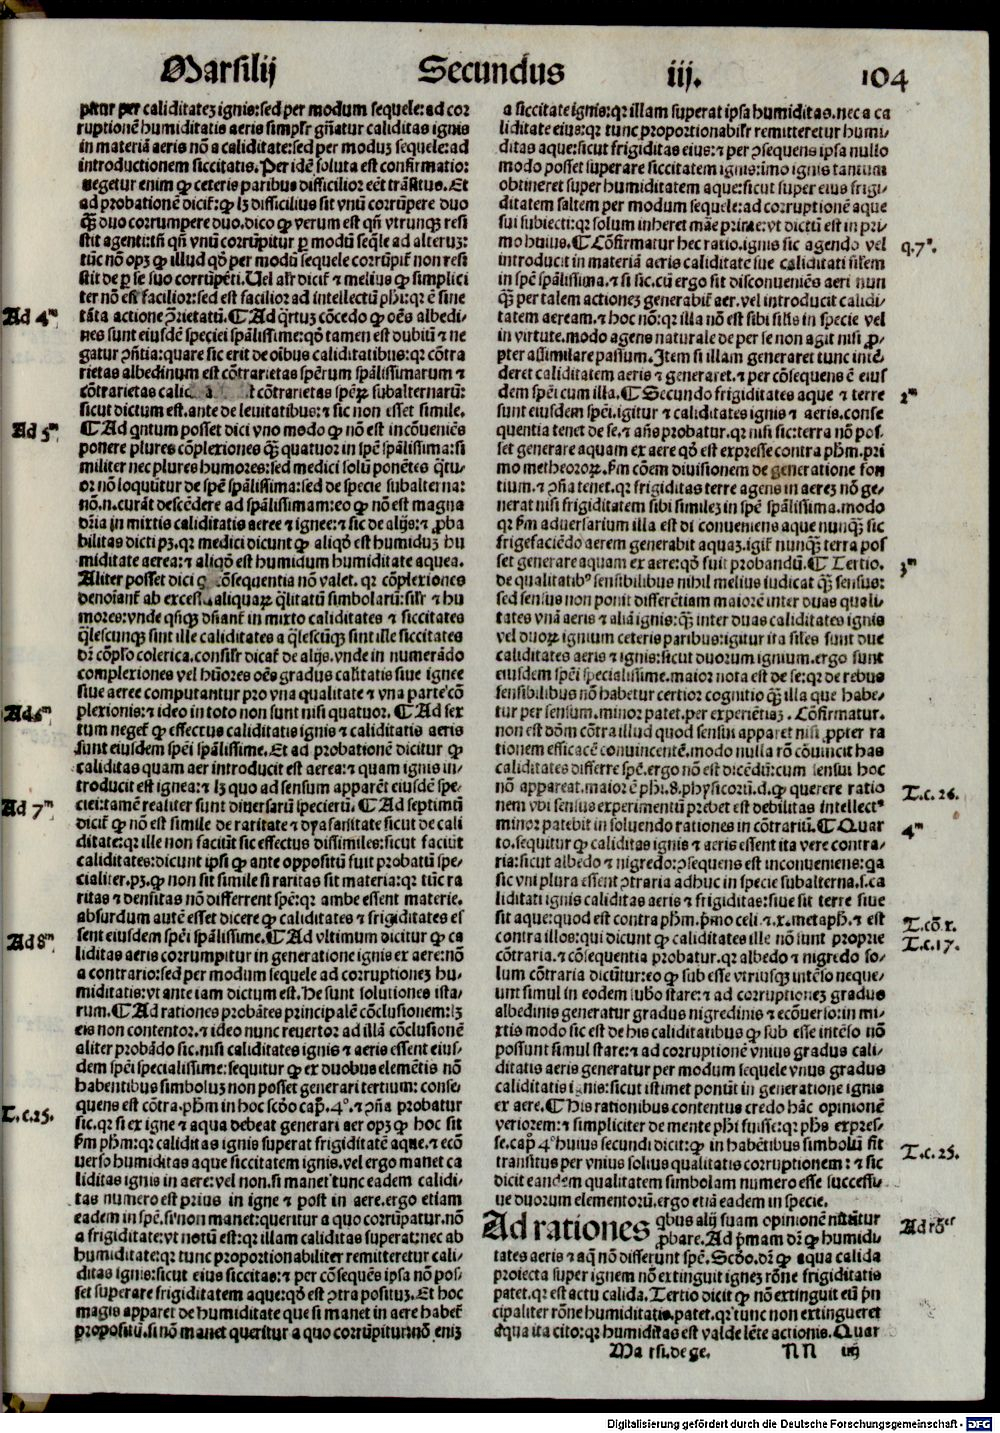 Marsilij Secundus iij. 104
per caliditatez ignis:sed per modum sequele:ad cor
ruptionē humiditatis aeris simplr gn̄atur caliditas ignis
in materiā aeris nō a caliditate:sed per moduz sequele:ad
introductionem siccitatis.Per idē soluta est confirmatio:
negetur enim ꝙ ceteris paribus difficilior eēt trāsitus.Et
ad probationē dicit᷑:ꝙ lꝫ difficilius sit vnū corrūpere duo
ꝙ̄ duo corrumpere duo.dico ꝙ verum est qn̄ vtrunqꝫ resi
stit agenti:tn̄ qn̄ vnū corrūpitur ꝑ modū seq̄le ad alteruꝫ:
tūc nō opꝫ ꝙ illud qd̓ per modū sequele corrūpit᷑ non resi
stit de ꝑ se suo corrūpēti.Uel alr̄ dicit᷑ ⁊ melius ꝙ simplici
ter nō est facilior:sed est facilior ad intellectū ph̓i:qꝛ ē sine
Ad 4ᵐ
tāta actione ꝯrietatū.¶Ad q̄rtuꝫ cōcedo ꝙ oēs albedi/
nes sunt eiusdē speciei spālissime:qd̓ tamen est dubiū ⁊ ne
gatur ꝯn̄tia:quare sic erit de oībus caliditatibus:qꝛ cōtra
rietas albedinum est cōtrarietas spērum spālissimarum ⁊
cōtrarietas cali t cōtrarietas speꝝ subalternarū:
sicut dictum est.ante de leuitatibus:⁊ sic non esset simile.
Ad 5ᵐ
¶Ad qntum posset dici vno modo ꝙ nō est incōueniēs
ponere plures cōplexiones ꝙ̄ quatuor in spē spālissima:si
militer nec plures humores:sed medici solū ponētes q̄tu/
or nō loquūtur de spē spālissima:sed de specie subalterna:
nō.n.curāt descēdere ad spālissimam:eo ꝙ nō est magna
dr̄ia in mixtis caliditatis aeree ⁊ ignee:⁊ sic de alijs:⁊ ꝓba
bilitas dicti pꝫ.qꝛ medici dicunt ꝙ aliqd̓ est humiduꝫ hu
miditate aerea:⁊ aliqd̓ est humidum humiditate aquea.
Aliter posset dici ōsequentia nō valet.qꝛ cōplexiones
denoīant᷑ ab excessu aliquaꝝ q̄litatū simbolarū:silr̄ ⁊ hu
mores:vnde qn̄cꝫ dn̄ant᷑ in mixto caliditates ⁊ siccitates
q̄lescunqꝫ sint ille caliditates a q̄lescūqꝫ sint ille siccitates
dꝛ cōpl̓o colerica.consilr̄ dicat᷑ de alijs.vnde in numerādo
complexiones vel hūores oēs gradus calitatis siue ignee
siue aeree computantur pro vna qualitate ⁊ vna parte cō
Ad 6ᵐ
plexionis:⁊ ideo in toto non sunt nisi quatuor.¶Ad sex
tum neget᷑ ꝙ effectus caliditatis ignis ⁊ caliditatis aeris
sunt eiusdem spēi spālissime.Et ad probationē dicitur ꝙ
caliditas quam aer introducit est aerea:⁊ quam ignis in/
troducit est ignea:⁊ lꝫ quo ad sensum apparēt eiusdē spe/
Ad 7ᵐ
ciei:tamē realiter sunt diuersarū specierū.¶Ad septimū
dicit᷑ ꝙ nō est simile de raritate ⁊ dyafanitate sicut de cali
ditate:qꝛ ille non faciūt sic effectus dissimiles:sicut faciūt
caliditates:dicunt ipsi ꝙ ante oppositū fuit probatū spe/
cialiter.pꝫ.ꝙ non sit simile si raritas sit materia:qꝛ tūc ra
ritas ⁊ densitas nō differrent spē:qꝛ ambe essent materie.
absurdum autē esset dicere ꝙ caliditates ⁊ frigiditates es
Ad 8ᵐ
sent eiusdem spēi spālissime.¶Ad vltimum dicitur ꝙ ca
liditas aeris corrumpitur in generatione ignis ex aere:nō
a contrario:sed per modum sequele ad corruptioneꝫ hu/
miditatis:vt ante iam dictum est.He sunt solutiones ista/
rum.¶Ad rationes probātes principalē cōclusionem:lꝫ
eis non contentor.⁊ ideo nunc reuertor ad illā cōclusionē
aliter probādo sic.nisi caliditates ignis ⁊ aeris essent eius/
dem spēi specialissime:sequitur ꝙ ex duobus elemētis nō
habentibus simboluꝫ non posset generari tertium: conse/
T.c.25.
quens est cōtra.ph̓m in hoc scd̓o cap̄.4º.⁊ ꝯn̄a probatur
sic.qꝛ si ex igne ⁊ aqua debeat generari aer opꝫ ꝙ hoc sit
fm̄ ph̓m:qꝛ caliditas ignis superat frigiditatē aque.⁊ ecō
uerso humiditas aque siccitatem ignis.vel ergo manet ca
liditas ignis in aere:vel non.si manet tunc eadem calidi/
tas numero est prius in igne ⁊ post in aere.ergo etiam
eadem in spē.si non manet:queritur a quo corrūpatur.nō
a frigiditate:vt notū est:qꝛ illam caliditas superat:nec ab
humiditate:qꝛ tunc proportionabiliter remitteretur cali/
ditas ignis:sicut eius siccitas:⁊ per cōsequēs ipsa nō pos/
set superare frigiditatem aque:qd̓ est ꝯtra posituꝫ.Et hoc
magis apparet de humiditate que si manet in aere habet᷑
propositū.si nō manet queritur a quo corrūpitur:nō eniꝫ
a siccitate ignis:qꝛ illam superat ipsa humiditas.nec a ca
liditate eius:qꝛ tunc proportionabilr̄ remitteretur humi/
ditas aque:sicut frigiditas eius:⁊ per ꝯsequens ipsa nullo
modo posset superare siccitatem ignis:imo ignis tantum
obtineret super humiditatem aque:sicut super eius frigi/
ditatem saltem per modum sequele:ad corruptionē aque
sui subiecti:qꝛ solum inheret māe prime:vt dictū est in pri/
q.7ª.
mo huius.¶Cōfirmatur hec ratio.ignis sic agendo vel
introducit in materiā aeris caliditatē sue caliditati silem
in spē spālissima.⁊ si sic.cū ergo sit disconueniēs aeri nun
ꝙ̄ per talem actioneꝫ generabit᷑ aer.vel introducit calidi/
tatem aeream.⁊ hoc nō:qꝛ illa nō est sibi silis in specie vel
in virtute.modo agens naturale de per se non agit nisi ꝓ/
pter assimilare passum.Item si illam generaret tunc intē/
deret caliditatem aeris ⁊ generaret.⁊ per cōsequens ē eius
2ᵐ
dem spēi cum illa.¶Secundo frigiditates aque ⁊ terre
sunt eiusdem spēi.igitur ⁊ caliditates ignis ⁊ aeris.conse
quentia tenet de se.⁊ an̄s probatur.qꝛ nisi sic:terra nō pos/
set generare aquam ex aere qd̓ est expresse contra ph̓m.pri
mo metheoroꝝ.fm̄ cōem diuisionem de generatione fon
tium.⁊ ꝯn̄a tenet.qꝛ frigiditas terre agens in aereꝫ nō ge/
nerat nisi frigiditatem sibi simileꝫ in spē spālissima.modo
qꝛ fm̄ aduersarium illa est di conueniens aque nunꝙ̄ sic
frigefaciēdo aerem generabit aquaꝫ.igit᷑ nunꝙ̄ terra pos
3ᵐ
set generare aquam ex aere:qd̓ fuit probandū.¶Tertio.
de qualitatibꝰ sensibilibus nihil melius iudicat ꝙ̄ sensus:
sed sensus non ponit differētiam maiorē inter duas quali/
tates vnā aeris ⁊ aliā ignis:ꝙ̄ inter duas caliditates ignis
vel duoꝝ ignium ceteris paribus:igitur ita siles sunt due
caliditates aeris ⁊ ignis:sicut duorum ignium.ergo sunt
eiusdem spēi specialissime.maior nota est de se:qꝛ de rebus
sensibilibus nō habetur certior cognitio ꝙ̄ illa que habe/
tur per sensum.minor patet.per experiētiaꝫ.Cōfirmatur.
non est dōm cōtra illud quod sensui apparet nisi ꝓpter ra
tionem efficacē conuincentē.modo nulla rō cōuincit has
caliditates differre spē.ergo nō est dicēdū:cum sensui hoc
T.c.26.
nō appareat.maior ē ph̓i.8.physicorū.d.ꝙ querere ratio
nem vbi sensus experimentū prebet est debilitas intellectꝰ
4ᵐ
minor patebit in soluendo rationes in cōtrariū.¶Quar
to.sequitur ꝙ caliditas ignis ⁊ aeris essent ita vere contra/
ria:sicut albedo ⁊ nigredo:ꝯsequens est inconueniens:qꝛ
sic vni plura essent ꝯtraria adhuc in specie subalterna.s.ca
liditati ignis caliditas aeris ⁊ frigiditas:siue sit terre siue
T.cō.x.
sit aque:quod est contra ph̓m.p̄mo celi ⁊.x.metaph̓.⁊ est
T.c.17.
contra illos:qui dicunt ꝙ caliditates ille nō sunt proprie
cōtraria.⁊ cōsequentia probatur.qꝛ albedo ⁊ nigredo so/
lum cōtraria dicūtur:eo ꝙ sub esse vtriusqꝫ intēso neque/
unt simul in eodem subo stare:⁊ ad corruptioneꝫ gradus
albedinis generatur gradus nigredinis ⁊ ecōuerso:in mi/
xtis modo sic est de his caliditatibus ꝙ sub esse intēso nō
possunt simul stare:⁊ ad corruptionē vnius gradus cali/
ditatis aeris generatur per modum sequele vnus gradus
caliditatis ignis:sicut isti met ponūt in generatione ignis
ex aere.¶His rationibus contentus credo hāc opinionē
veriorem:⁊ simpliciter de mente ph̓i fuisse:qꝛ ph̓s expres/
T.c.25.
se.cap̄ 4º huius secundi dicit:ꝙ in habētibus simbolū fit
transitus per vnius solius qualitatis corruptionem:⁊ sic
dicit eandem qualitatem simbolam numero esse successi/
ue duorum elementorū.ergo etiā eadem in specie.
Ad rō᷑ᵉˢ
Ad rationes qbus alij suam opinionē nitūtur
ꝓbare.Ad p̄mam dꝛ ꝙ humidi/
tates aeris ⁊ aq̄ nō differunt spē.Scd̓o.dꝛ ꝙ aqua calida
proiecta super ignem nō extinguit igneꝫ rōne frigiditatis
patet.qꝛ est actu calida.Tertio dicit᷑ ꝙ nō extinguit eū p̄n
cipaliter rōne humiditatis.patet.qꝛ tunc non extingueret
aqua ita cito:qꝛ humiditas est valde lēte actionis.Quar
Marsi.de ge. NN iiij
Digitalisierung gefördert durch die Deutsche Forschungsgemeinschaft - DFG